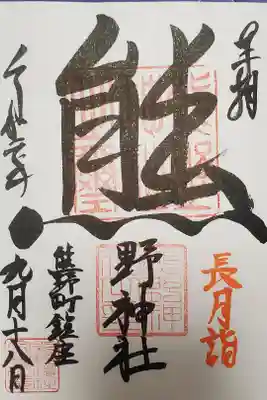 奉拝
長月詣
熊
野神社
熊野町鎮座
令和年
九月十八日